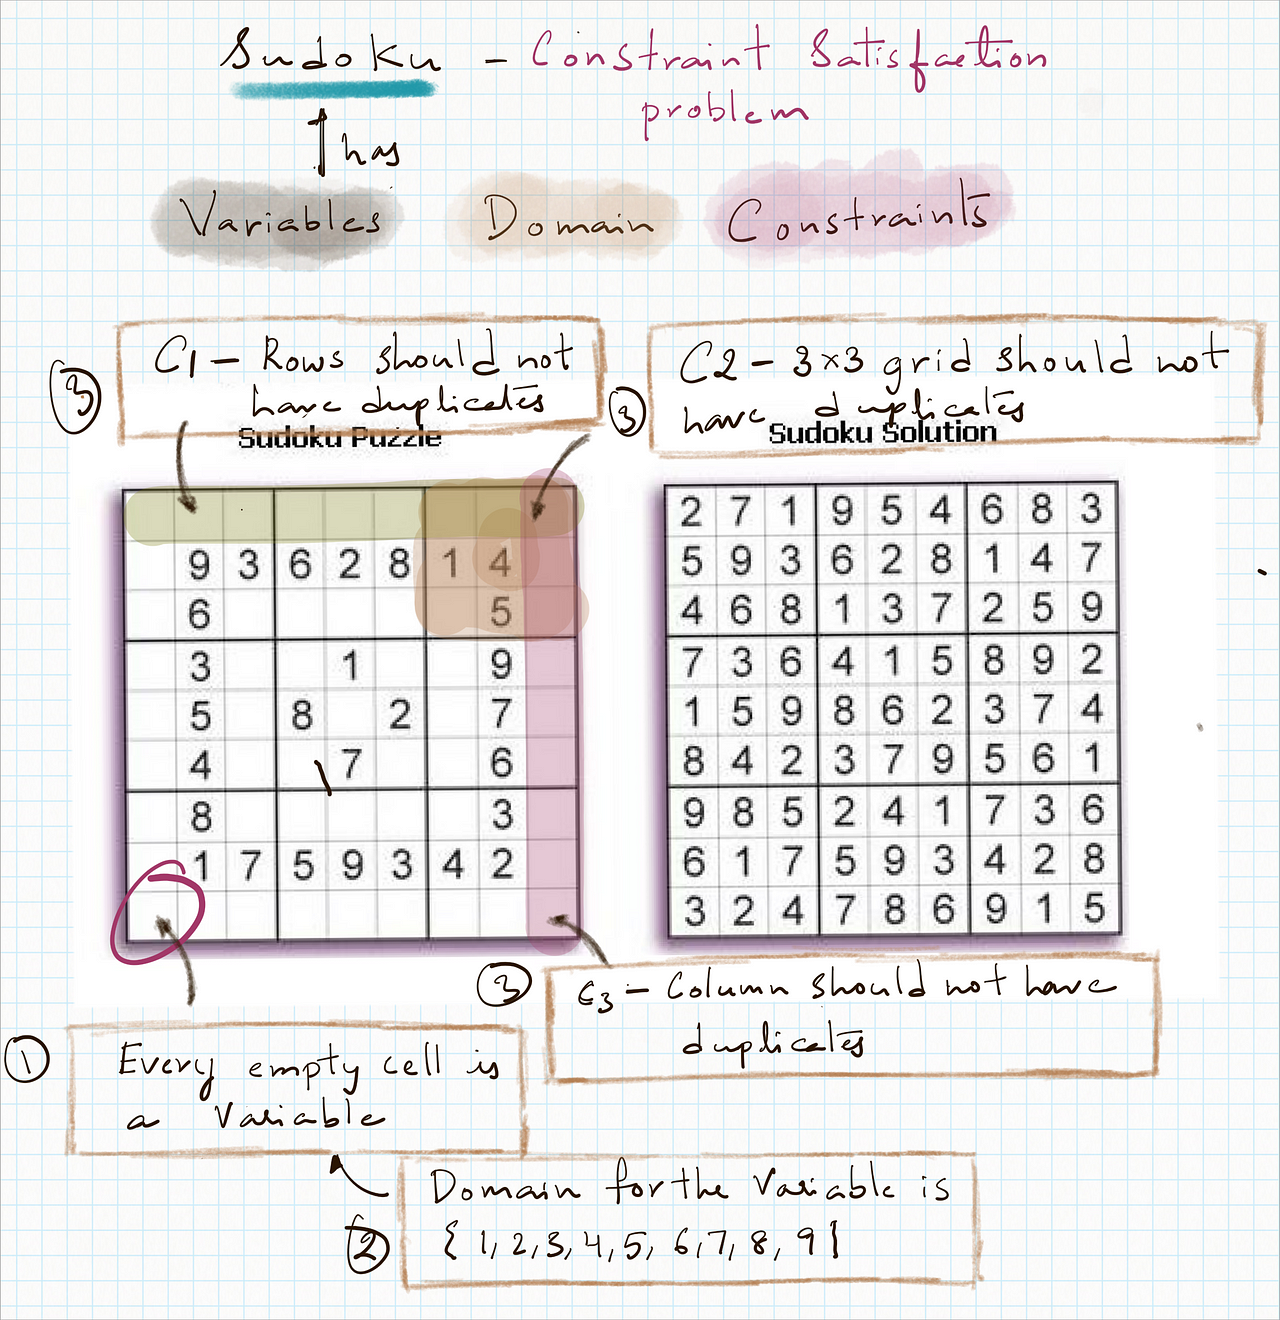 Sudoku - Constraint Satisfaction
problem
has
Variables Domain Constraints
3
C1 - Rows should not
have duplicates
3
C2 - 3x3 grid should not
have duplicates
Sudoku Puzzle
9 3 6 2 8 1 4
6 5
3 1 9
5 8 2 7
4 7 6
8 3
1 7 5 9 3 4 2
Sudoku Solution
2 7 1 9 5 4 6 8 3
5 9 3 6 2 8 1 4 7
4 6 8 1 3 7 2 5 9
7 3 6 4 1 5 8 9 2
1 5 9 8 6 2 3 7 4
8 4 2 3 7 9 5 6 1
9 8 5 2 4 1 7 3 6
6 1 7 5 9 3 4 2 8
3 2 4 7 8 6 9 1 5
3
C3 - Column should not have
duplicates
1
Every empty cell is
a Variable
2
Domain for the Variable is
{ 1, 2, 3, 4, 5, 6, 7, 8, 9 }